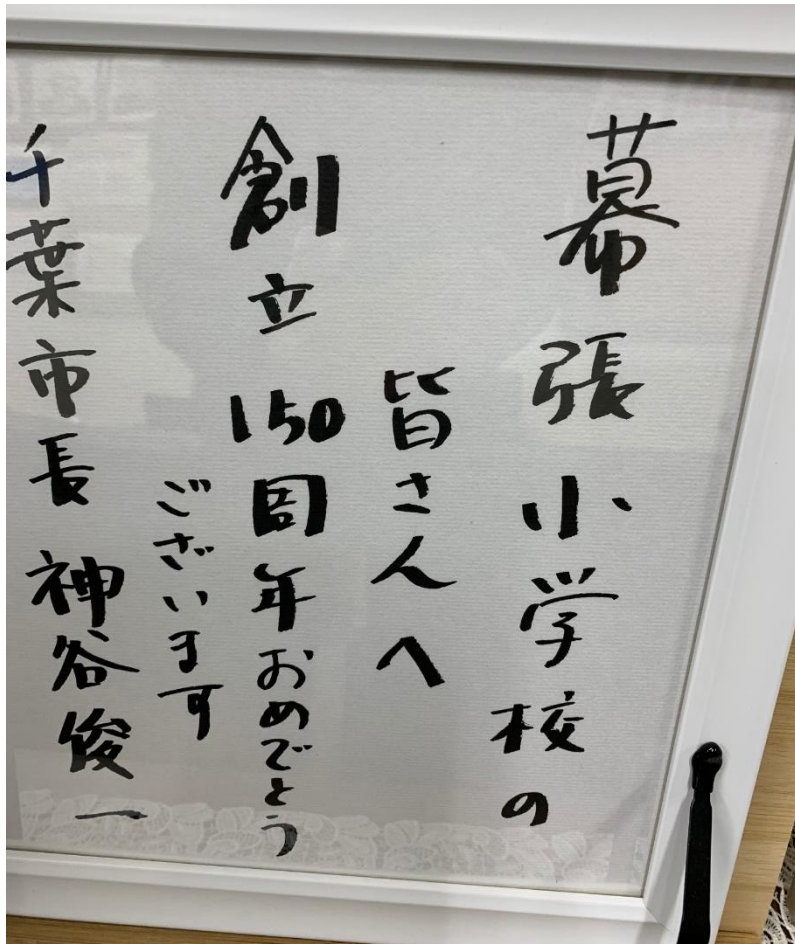 幕張小学校の
皆さんへ
創立150周年おめでとう
ございます
千葉市長 神谷俊一